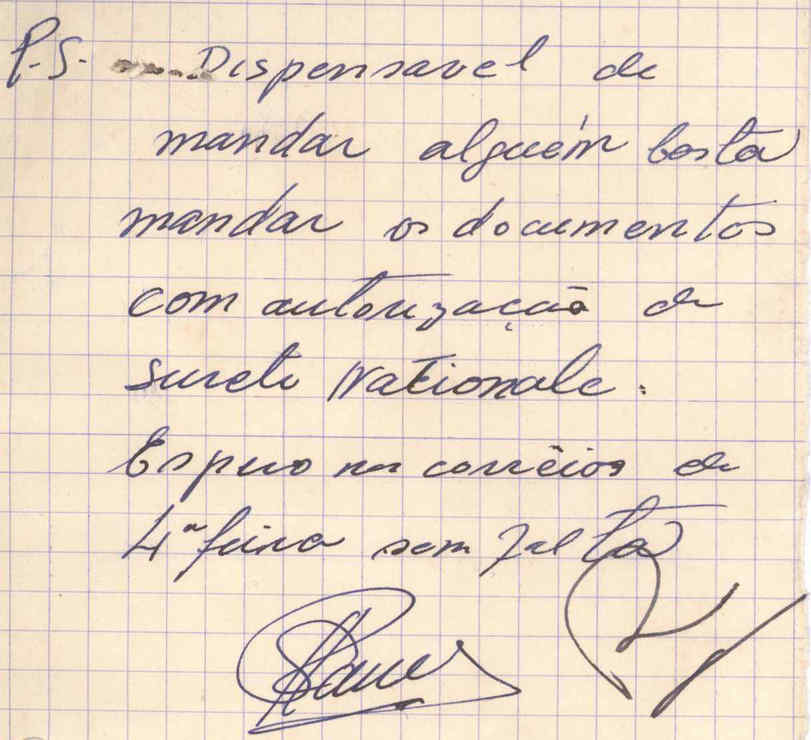 P.S. Dispensavel de
mandar alguém basta
mandar os documentos
com autorização de
Surete Nationale.
Espero nos corrêios de
4ª feira sem falta